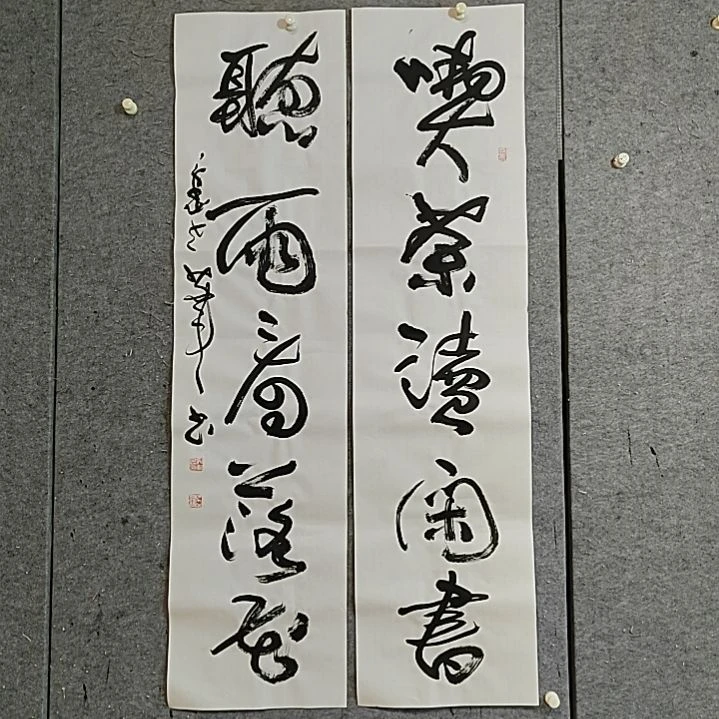 喫茶讀閑書
聽雨看落花
書